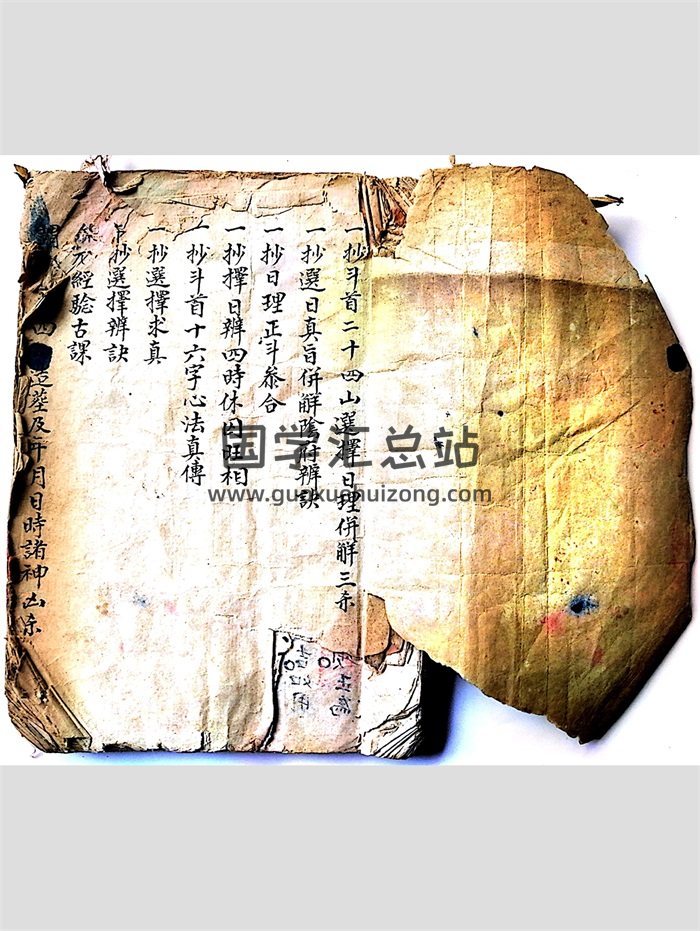 一抄斗首二十四山選擇日理併解三条
一抄選日真旨併解陰府辨訣
一抄日理正斗叅合
一抄擇日辨四時休囚旺相
一抄斗首十六字心法真傳
一抄選擇求真
抄選擇辨訣
經驗古課
四 造塟及年月日時諸神凶条
国学汇总站
www.guoxuehuizong.com